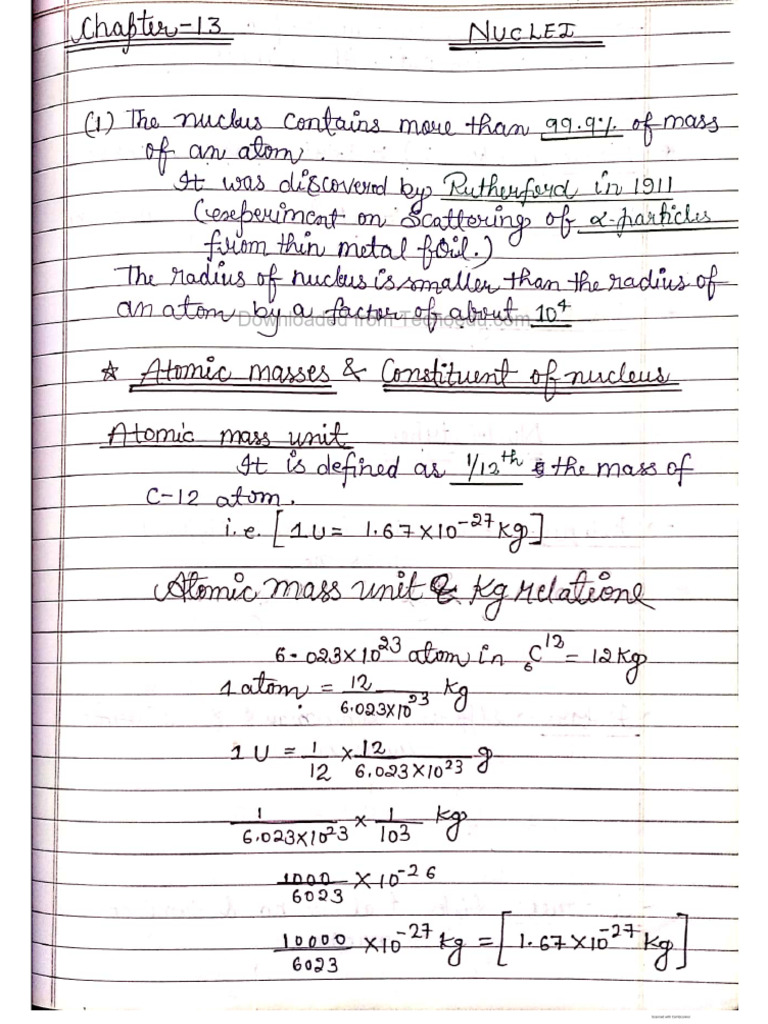 Chapter-13 NUCLEI
(1) The nucleus contains more than 99.9% of mass
of an atom.
It was discovered by Rutherford in 1911
(experiment on Scattering of α-particles
from thin metal foil.)
The radius of nucleus is smaller than the radius of
an atom by a factor of about 10⁴
Downloaded from Techoedu.com
☆ Atomic masses & Constituent of nucleus
Atomic mass unit
It is defined as 1/12ᵗʰ the mass of
C-12 atom.
i.e. [1U = 1.67×10⁻²⁷Kg]
Atomic mass unit & Kg relatione
6.023×10²³ atom in ₆C¹² = 12Kg
1 atom = 12/6.023×10²³ Kg
1 U = 1/12 × 12/6.023×10²³ g
1/6.023×10²3 × 1/103 Kg
1000/6023 ×10⁻²⁶
10000/6023 ×10⁻²⁷ Kg = [1.67×10⁻²⁷ Kg]